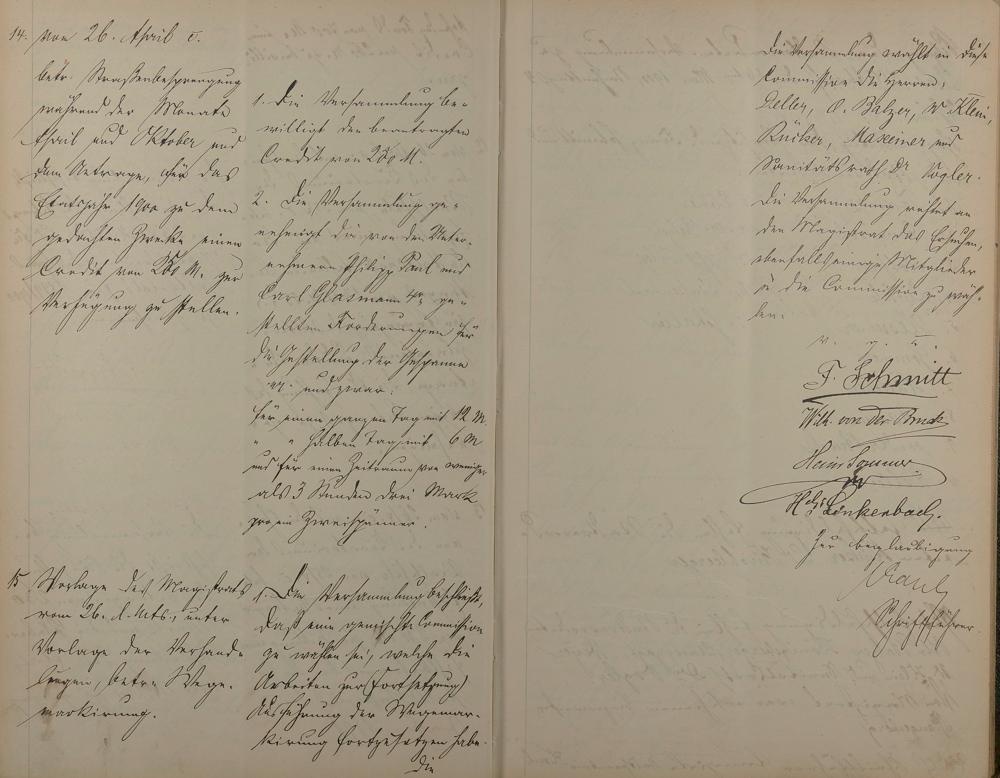 14. Von 26. April c.
betr. Straßenbesprengung
während der Monate
April und Oktober und
dem Antrage, für das
Etatsjahr 1900 zu dem
gedachten Zwecke einen
Credit von 250 M. zur
Verfügung zu stellen.
1. Die Versammlung be-
willigt den beantragten
Credit von 250 M.
2. Die Versammlung ge-
nehmigt die von den Unter-
nehmern Philipp Paul und
Carl Glasmann gε-
stellten Forderungen für
die Gestellung der Gespanne
und zwar:
für einen ganzen Tag mit 12 M
" " halben Tag mit 6 M
und für einen Zeitraum von weniger
als 3 Stunden drei Mark
pro ein Zweispänner.
15 Vorlage des Magistrats
vom 26. d. Mts., unter
Vorlage der Verhand-
lungen, betr. Wege-
markirung.
1. Die Versammlung beschließt,
daß eine gemischte Commission
zu wählen sei, welche die
Arbeiten zur (Fortsetzung)
Ausführung der Wegemar-
kirung fortzusetzen habe.
Die
Die Versammlung wählt in diese
Commission die Herren:
O. Balzer, W Klein,
Rücker, Masseiner und
Sanitätsrath Dr Vogler.
Die Versammlung richtet an
den Magistrat das Ersuchen,
ebenfalls einige Mitglieder
in die Commission zu wäh-
len.
v. g. u.
F. Schmitt
Wilh. von der Bruck
Heinr Sommer
Linkenbach.
Zur Beglaubigung
Schriftführer